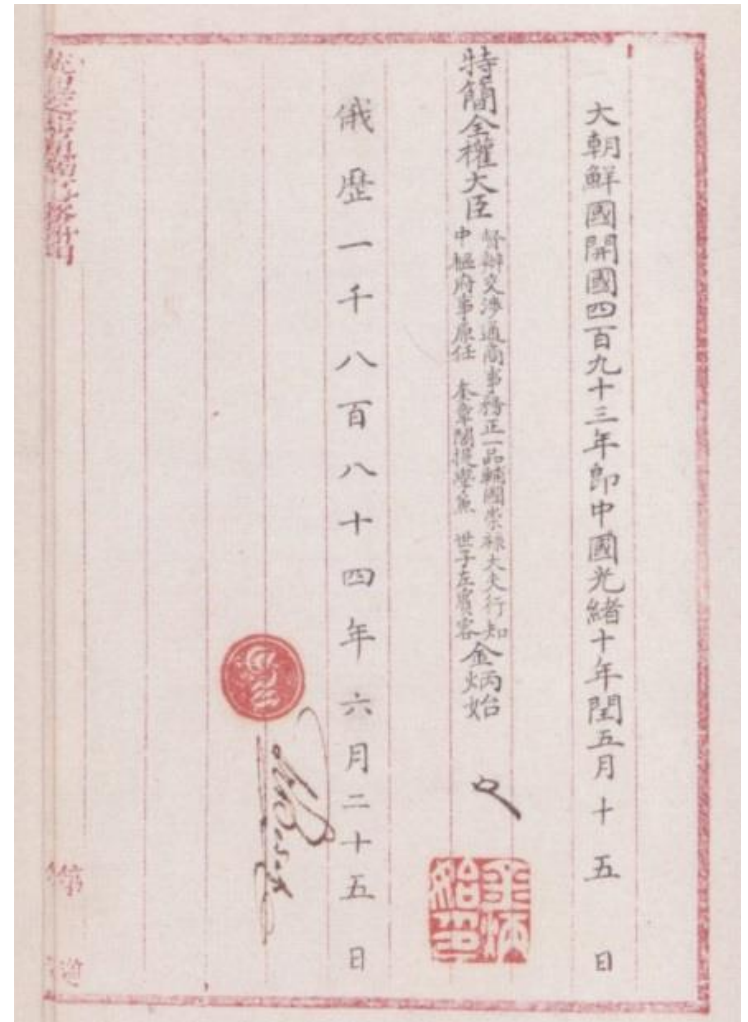 大朝鮮國開國四百九十三年卽中國光緖十年閏五月十五日
特簡全權大臣
督辦交涉通商事務正一品輔國崇祿大夫行知
中樞府事原任 奎章閣提學兼 世子左賓客
金炳始
金炳始印
俄歷一千八百八十四年六月二十五日
第
道